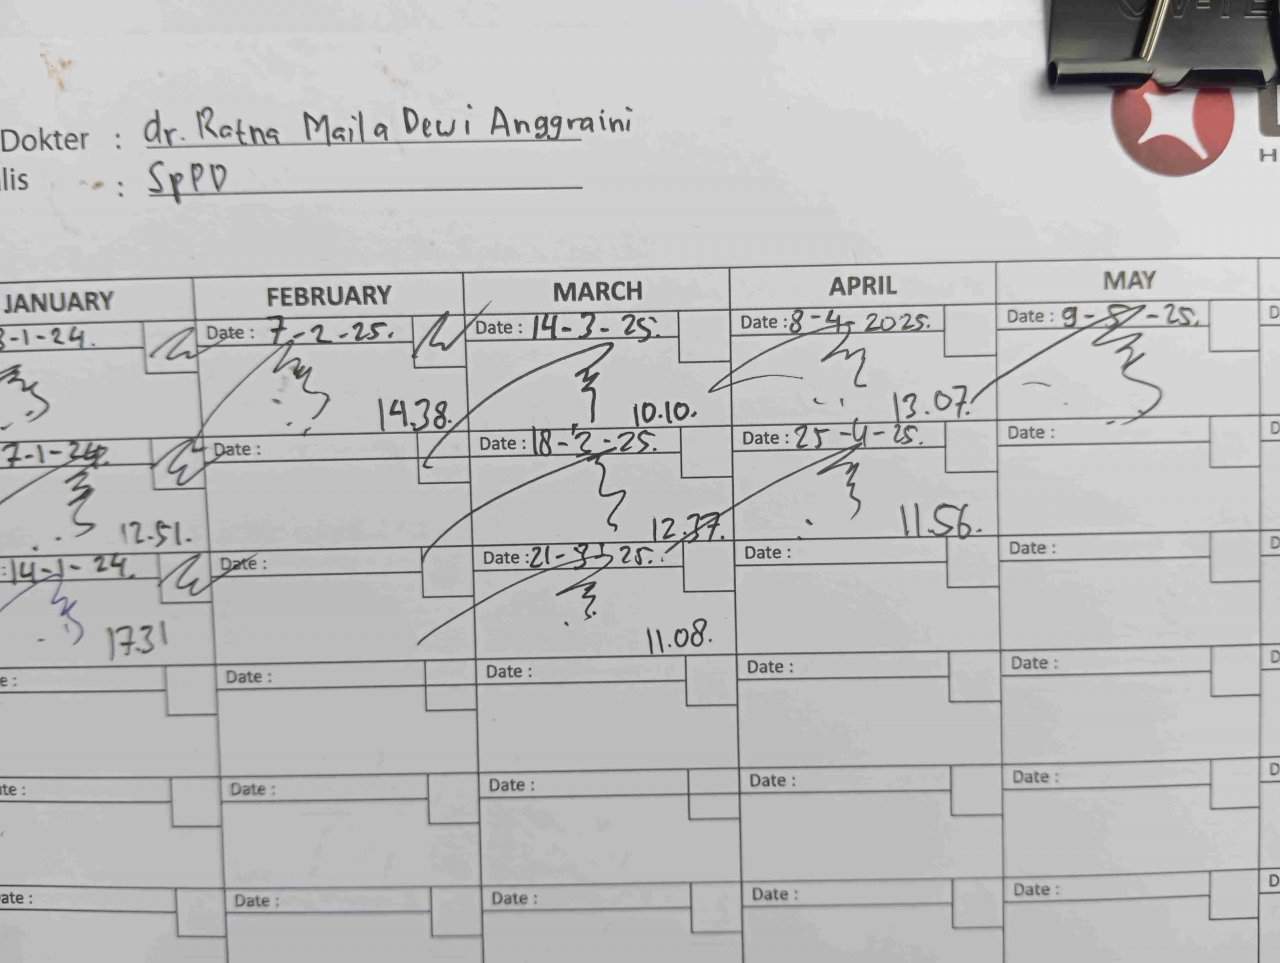 Dokter : dr. Ratna Maila Dewi Anggraini
lis : SpPD
H
JANUARY FEBRUARY MARCH APRIL MAY
3-1-24. Date : 7-2-25. Date : 14-3-25. Date : 8-4-2025. Date : 9-5-25. D
14.38. 10.10. 13.07.
7-1-24. Date : Date : 18-3-25. Date : 25-4-25. Date : D
12.51. 12.37. 11.56.
: 14-1-24. Date : Date : 21-3-25. Date : Date : D
17.31 11.08.
e : Date : Date : Date : Date : D
te : Date : Date : Date : Date : D
ate : Date : Date : Date : Date : D